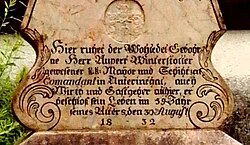 Hier ruhet der Wohledel Gebohr
ne Herr Rupert Wintersteller
gewesener k.k. Mayor und Schützen
Comandant in Unterinzgal, auch
Wirth und Gastgeber alhier, er
beschloß sein Leben im 59 Jahr
seines Alters, den 30 August
1832